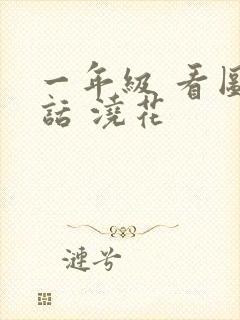 一年級 看圖
話 澆花
漣兮